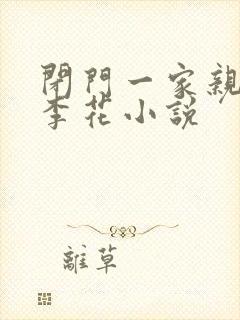 閉門一家親
李花小説
離草